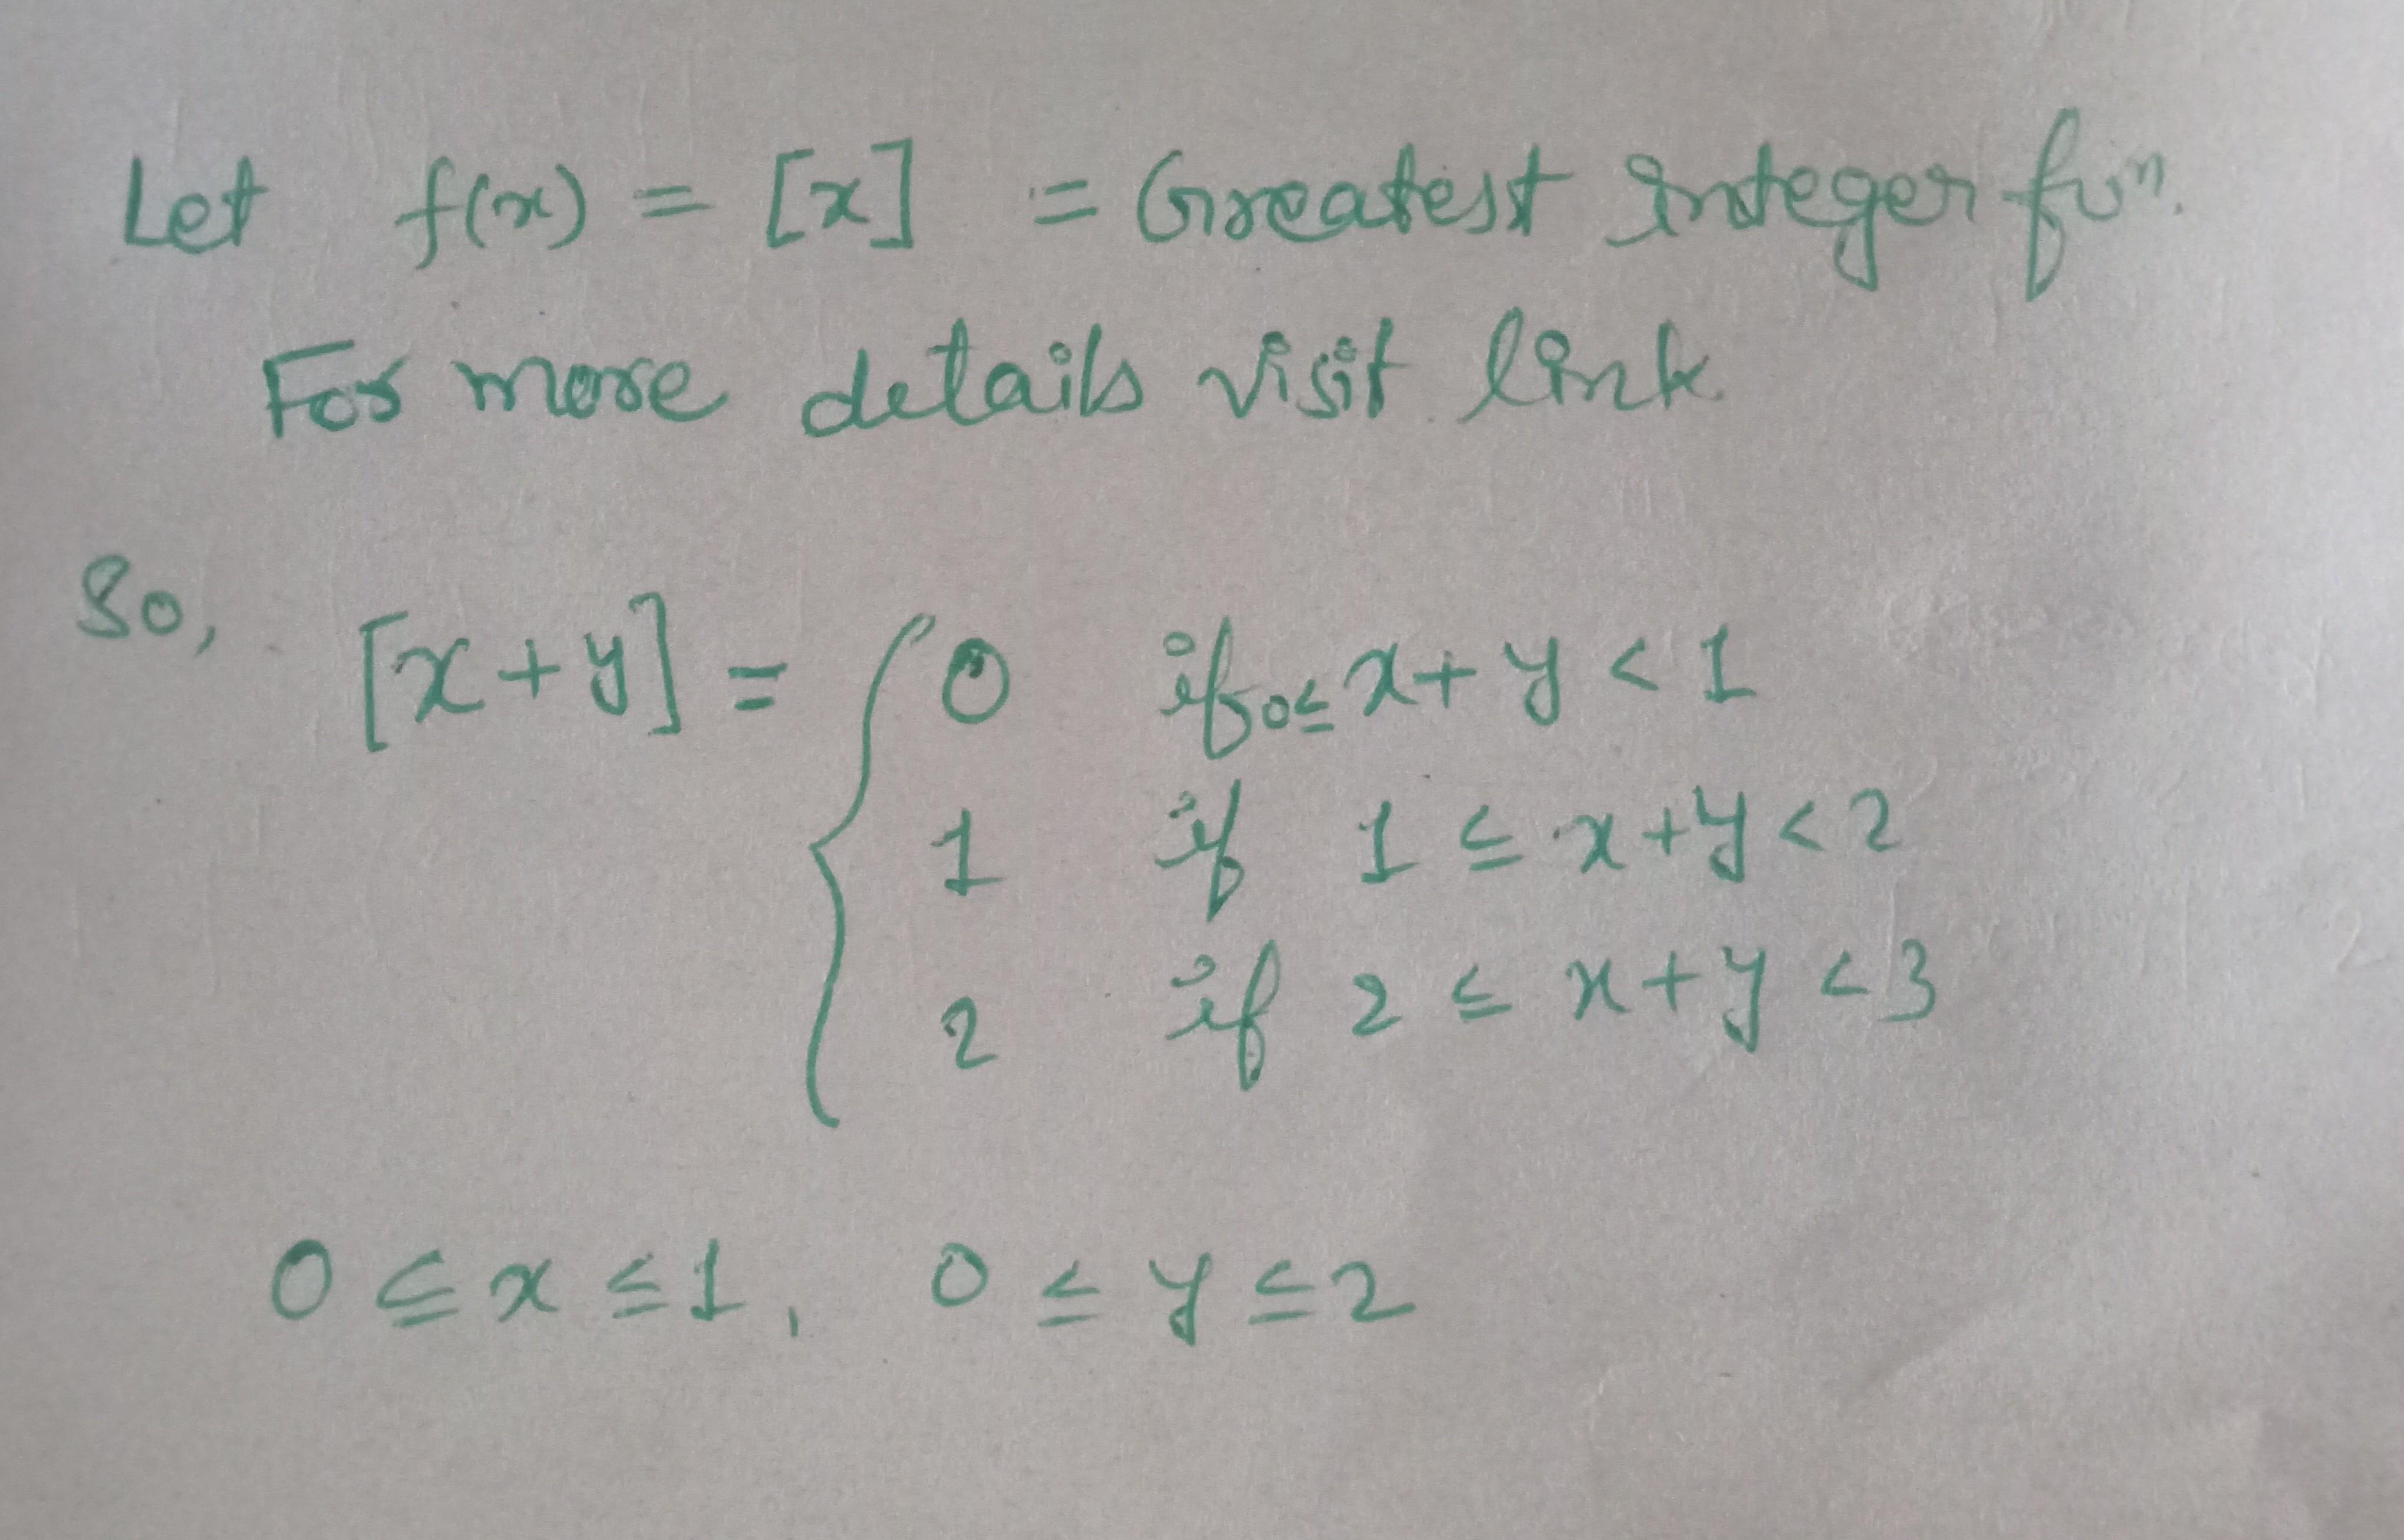 Let f(x) = [x] = Greatest Integer fuⁿ.
For more details visit link
So, [x+y] = { 0 if 0≤ x+y < 1
1 if 1 ≤ x+y < 2
2 if 2 ≤ x+y < 3
0 ≤ x ≤ 1, 0 ≤ y ≤ 2